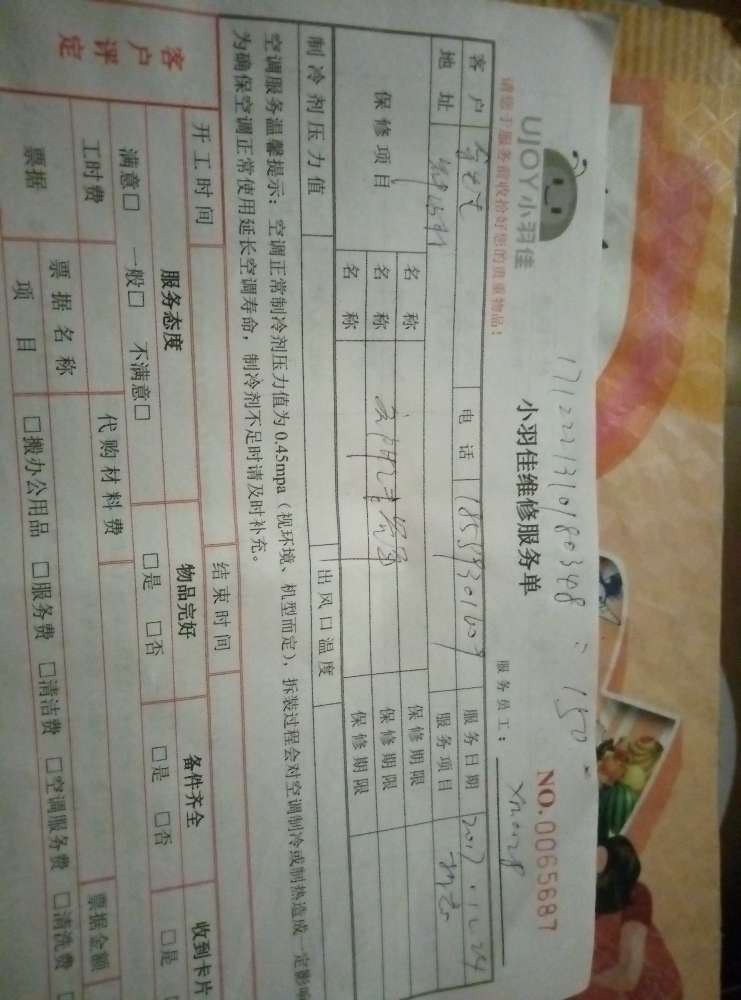 UJOY小羽佳
请您于服务前收拾好您的贵重物品！
小羽佳维修服务单
150
服务员工：
NO.0065687
客户 电话 服务日期 2017.12.24
地址 服务项目
保修项目 名称 保修期限
名称 保修期限
名称 保修期限
制冷剂压力值 出风口温度
空调服务温馨提示：空调正常制冷剂压力值为0.45mpa（视环境、机型而定），拆装过程会对空调制冷或制热造成一定影响
为确保空调正常使用延长空调寿命，制冷剂不足时请及时补充。
开工时间 结束时间
客户评定 服务态度 物品完好 备件齐全 收到卡片
满意□ 一般□ 不满意□ □是 □否 □是 □否 □是
工时费 代购材料费
票据 票据名称 票据金额
项目 □搬办公用品 □服务费 □清洁费 □空调服务费 □清洗费